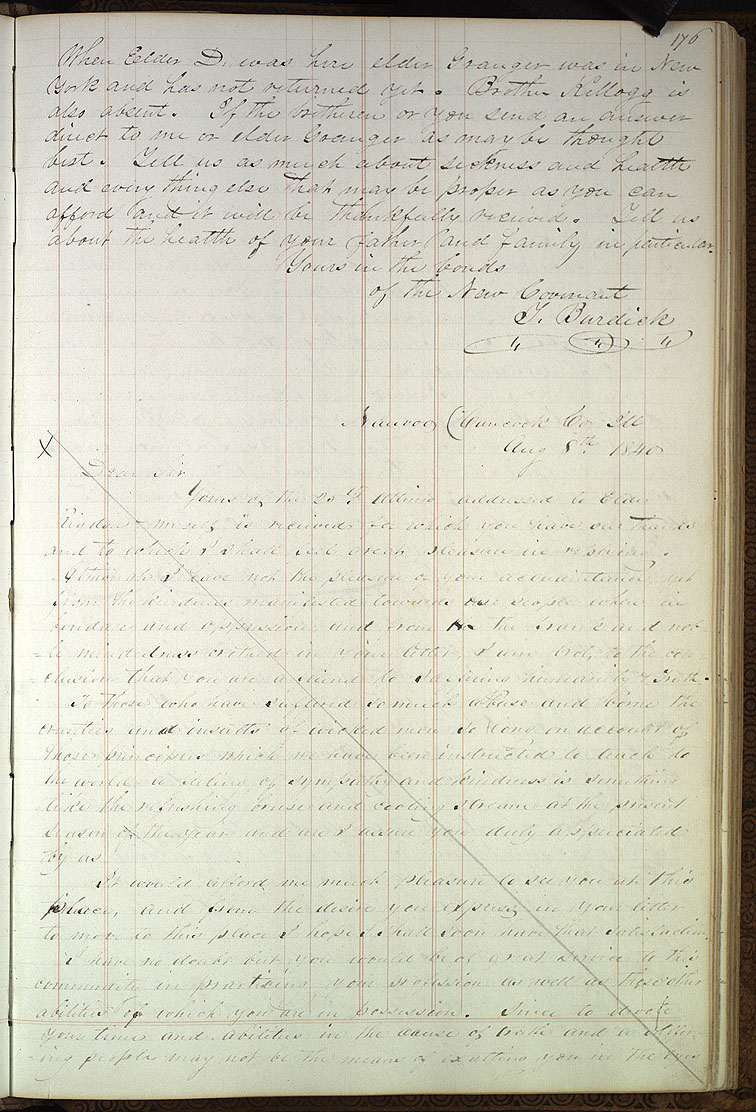 176
When Eelder D. was here elder Granger was in New
York and has not returned yet. Brother Kellogg is
also absent. If the brotheren or you send an answer
direct to me or elder Granger as may be thought
best. Tell us as much about sickness and health
and every thing else that may be proper as you can
afford and it will be thankfully received. Tell us
about the health of your father and family in particular.
Yours in the bonds
of the New Covenant
T. Burdick
Nauvoo Hancock Co. Ill
Aug 8th. 1840
X
Dear Sir
Yours of the 20th Ultimo addressed to Elder
Rigdon & myself is received for which you have our thanks
and to which I shall feel great pleasure in replying.
Altho I have not the pleasure of your acquaintance, yet
from the kindness manifested towards our people when in
bondage and oppression, and from the frank and nob-
le mindedness breathed in your letter, I am brot, to the con-
clusion that you are a friend to suffering humanity & truth.
To those who have suffered so much abuse and borne the
cruelties and insults of wicked men so long on account of
those principles which we have been instructed to teach to
the world a feeling of sympathy and kindness is something
like the refreshing breese and cooling stream at the present
season of the year and are I assure you duly appreciated
by us
It would afford me much pleasure to see you at this
place, and from the desire you express in your letter
to move to this place I hope I shall soon have that satisfaction.
I have no doubt but you would be of great service to this
community in practicing your profession as well as those other
abilities of which you are in possession. Since to devote
your time and abilities in the cause of truth and a suffer-
ing people may not be the means of exalting you in the eyes